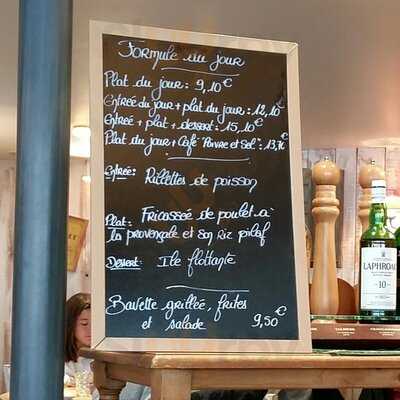 Formule du jour
Plat du jour : 9,10€
Entrée du jour + plat du jour : 12,10€
Entrée + plat + dessert : 15,10€
Plat du jour + Café "Poivre et Sel" : 13,
Entrée : Rillettes de poisson
Plat : Fricassée de poulet à
la provençale et son riz pilaf
Dessert : Ile flottante
Bavette grillée, frites
et salade 9,50€
LAPHROAIG
10